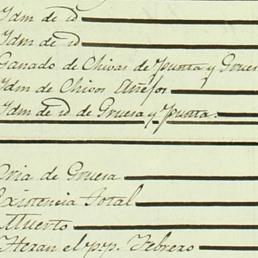 Idm de id
Idm de id
Ganado de Chivas de Punta y Grue
Idm de Chivos Añejos
Idm de id de Gruesa y Punta.
Cria de Gruesa
Existencia Total
Muerto
Hera el p.p. Febrero